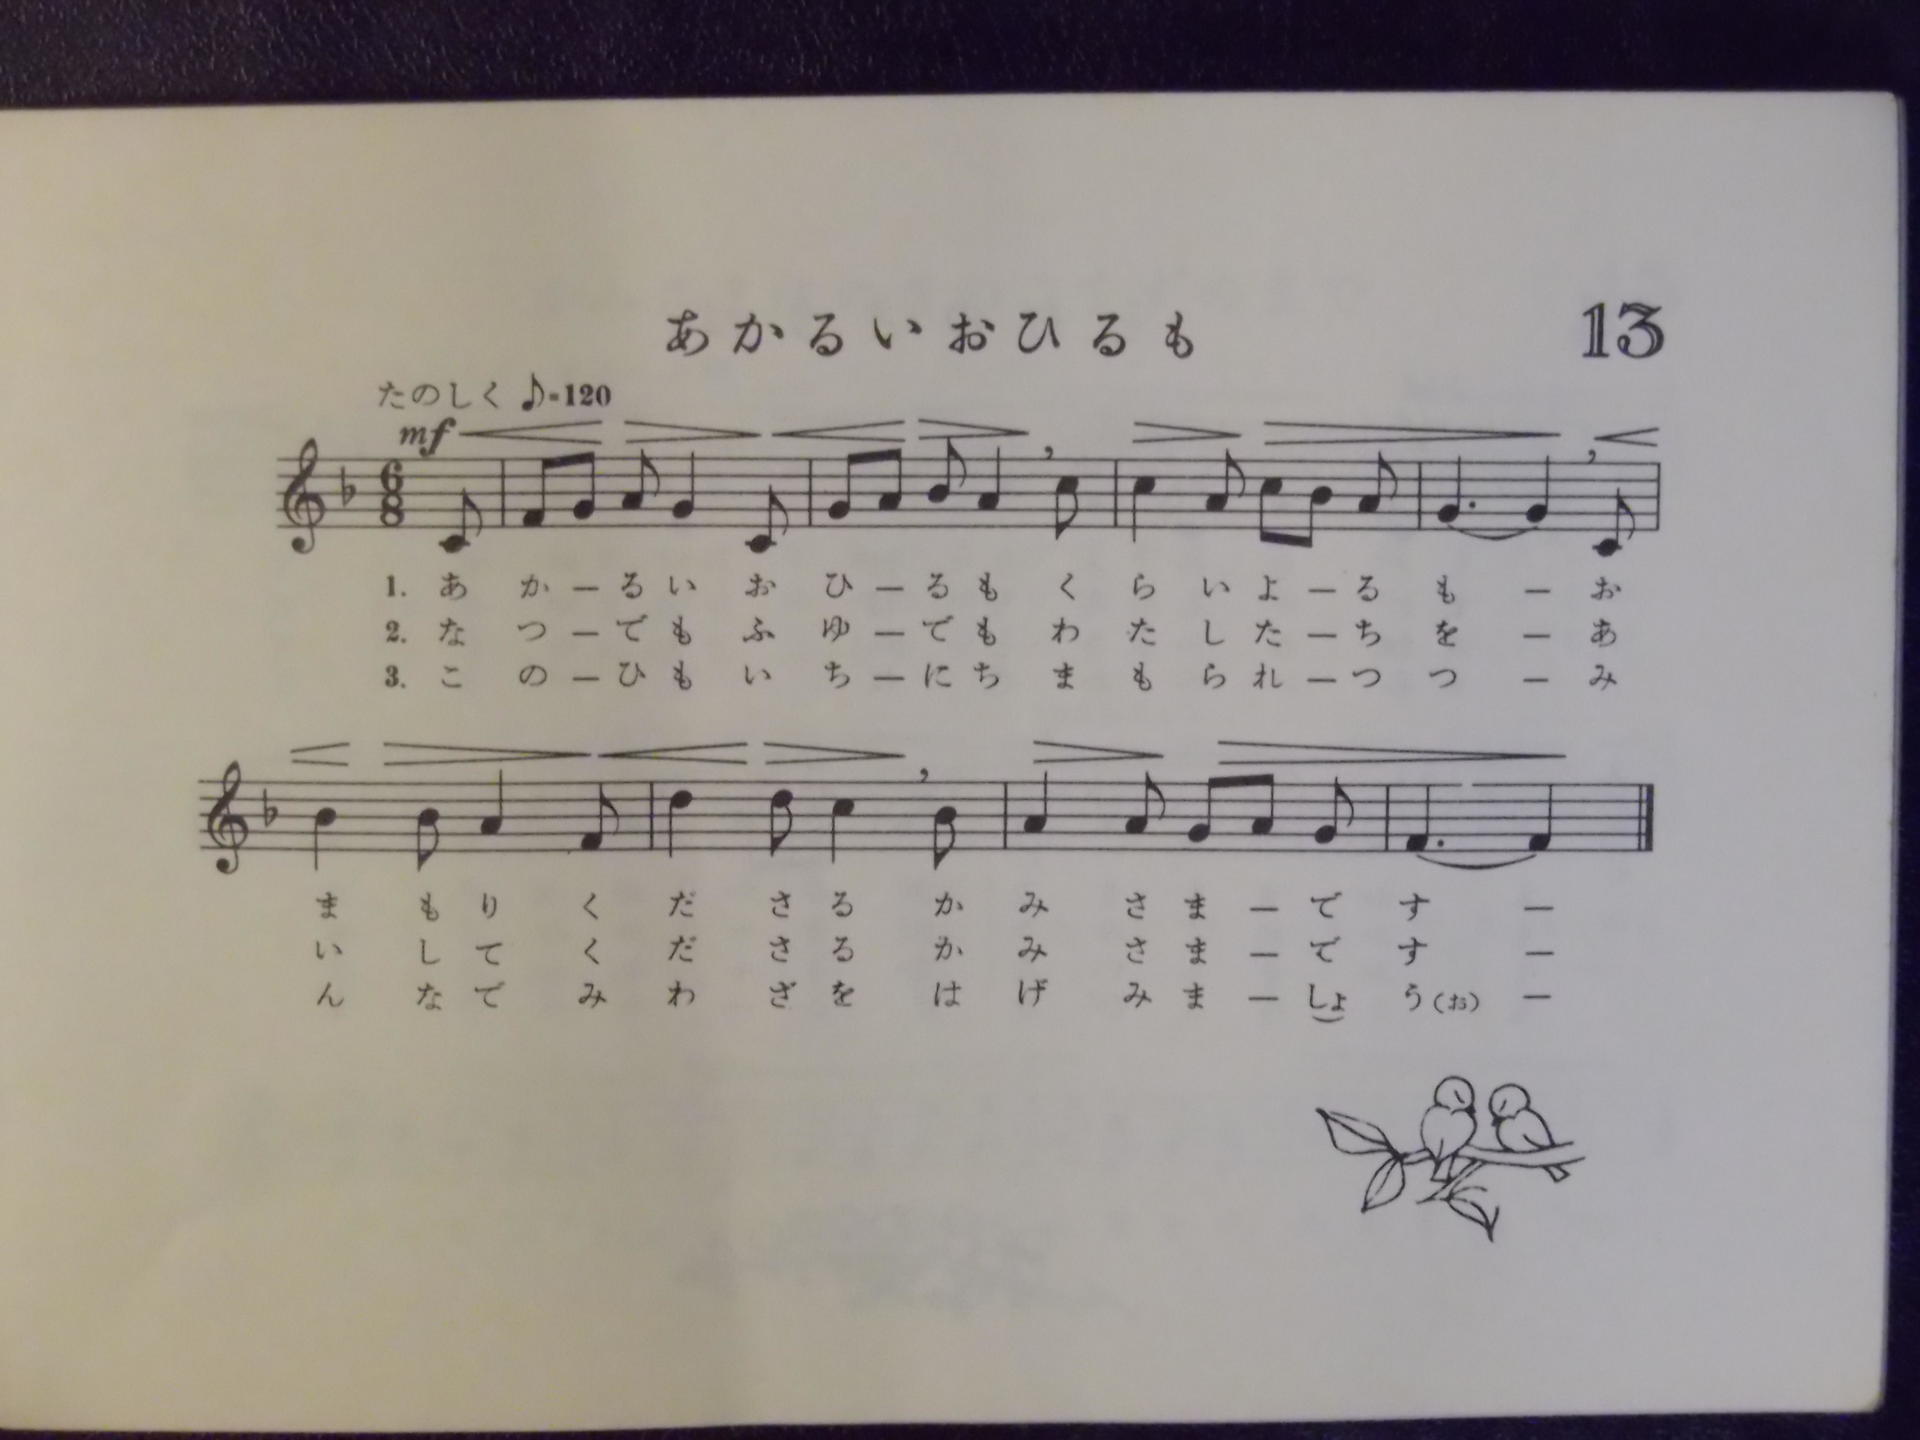 あかるいおひるも
13
たのしく ♪=120
mf
6
8
1. あ か ー る い お ひ ー る も く ら い よ ー る も ー お
2. な つ ー で も ふ ゆ ー で も わ た し た ー ち を ー あ
3. こ の ー ひ も い ち ー に ち ま も ら れ ー つ つ ー み
ま も り く だ さ る か み さ ま ー で す ー
い し て く だ さ る か み さ ま ー で す ー
ん な で み わ ざ を は げ み ま ー しょ う(お) ー